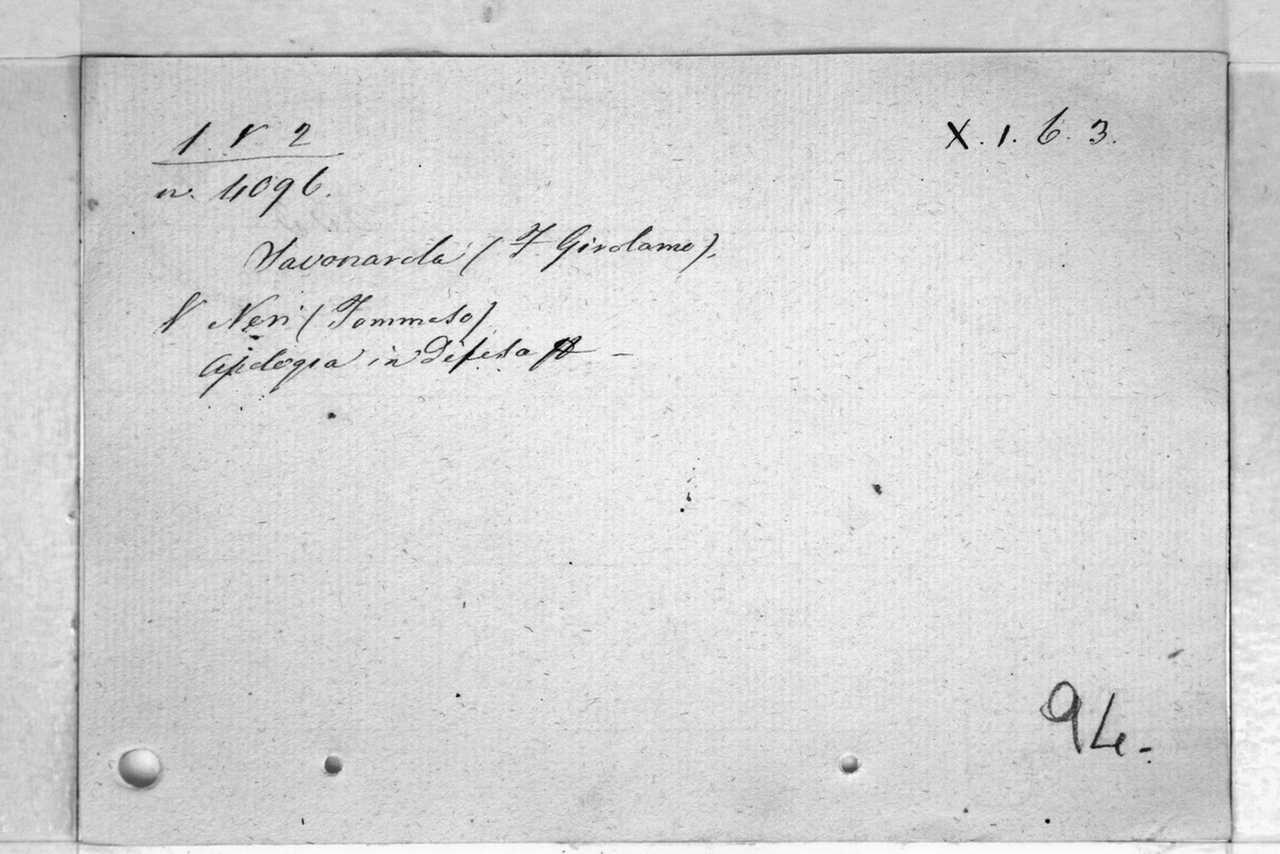 1. V 2
X. 1. 6. 3.
n. 4096.
Savonarola (F. Girolamo).
V Neri (Tommaso)
Apologia in Difesa
94.